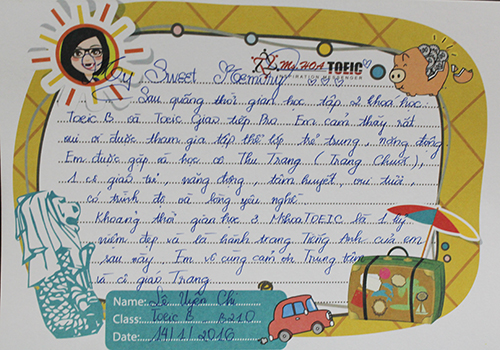 My Sweet Memory
Ms HOA TOEIC
INSPIRATION MESSENGER
Sau quãng thời gian học tập 2 khoá học:
Toeic B và Toeic Giao tiếp Pro. Em cảm thấy rất
vui vì được tham gia tập thể lớp trẻ trung, năng động.
Em được gặp và học cô Thu Trang (Trang Chuối),
1 cô giáo trẻ, năng động, tâm huyết, vui tươi,
có trình độ và lòng yêu nghề.
Khoảng thời gian học ở MshoaTOEIC là 1 kỷ
niệm đẹp và là hành trang Tiếng Anh của em
sau này. Em vô cùng cảm ơn Trung tâm
và cô giáo Trang
Name: Lê Uyên Chi
Class: Toeic B - B210
Date: 14/11/2016